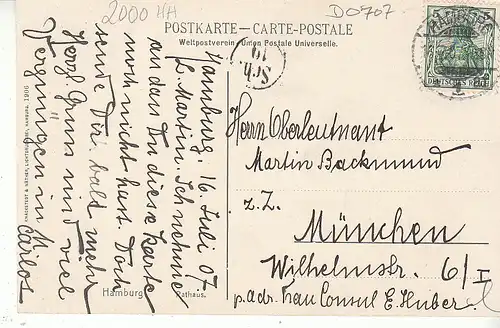 2000 HH
D0707
POSTKARTE – CARTE-POSTALE
Weltpostverein – Union Postale Universelle.
HAMBURG
DEUTSCHES REICH
5 5
Sch.
19
Hamburg, 16. Juli 07
L. Martin. Ich nehme
an dass Du diese Karte
noch nicht hast. Doch
sende Dir bald mehr
Herzl. Gruss und viel
Vergnügen in M.
Carlos
Hamburg
Rathaus.
KNACKSTEDT & NÄTHER, LICHTDRUCKEREI, HAMBURG. 1906
Herrn Oberleutnant
Martin Backmund
z. Z.
München
Wilhelmstr. 6/I
p. adr. Frau Consul E. Huber